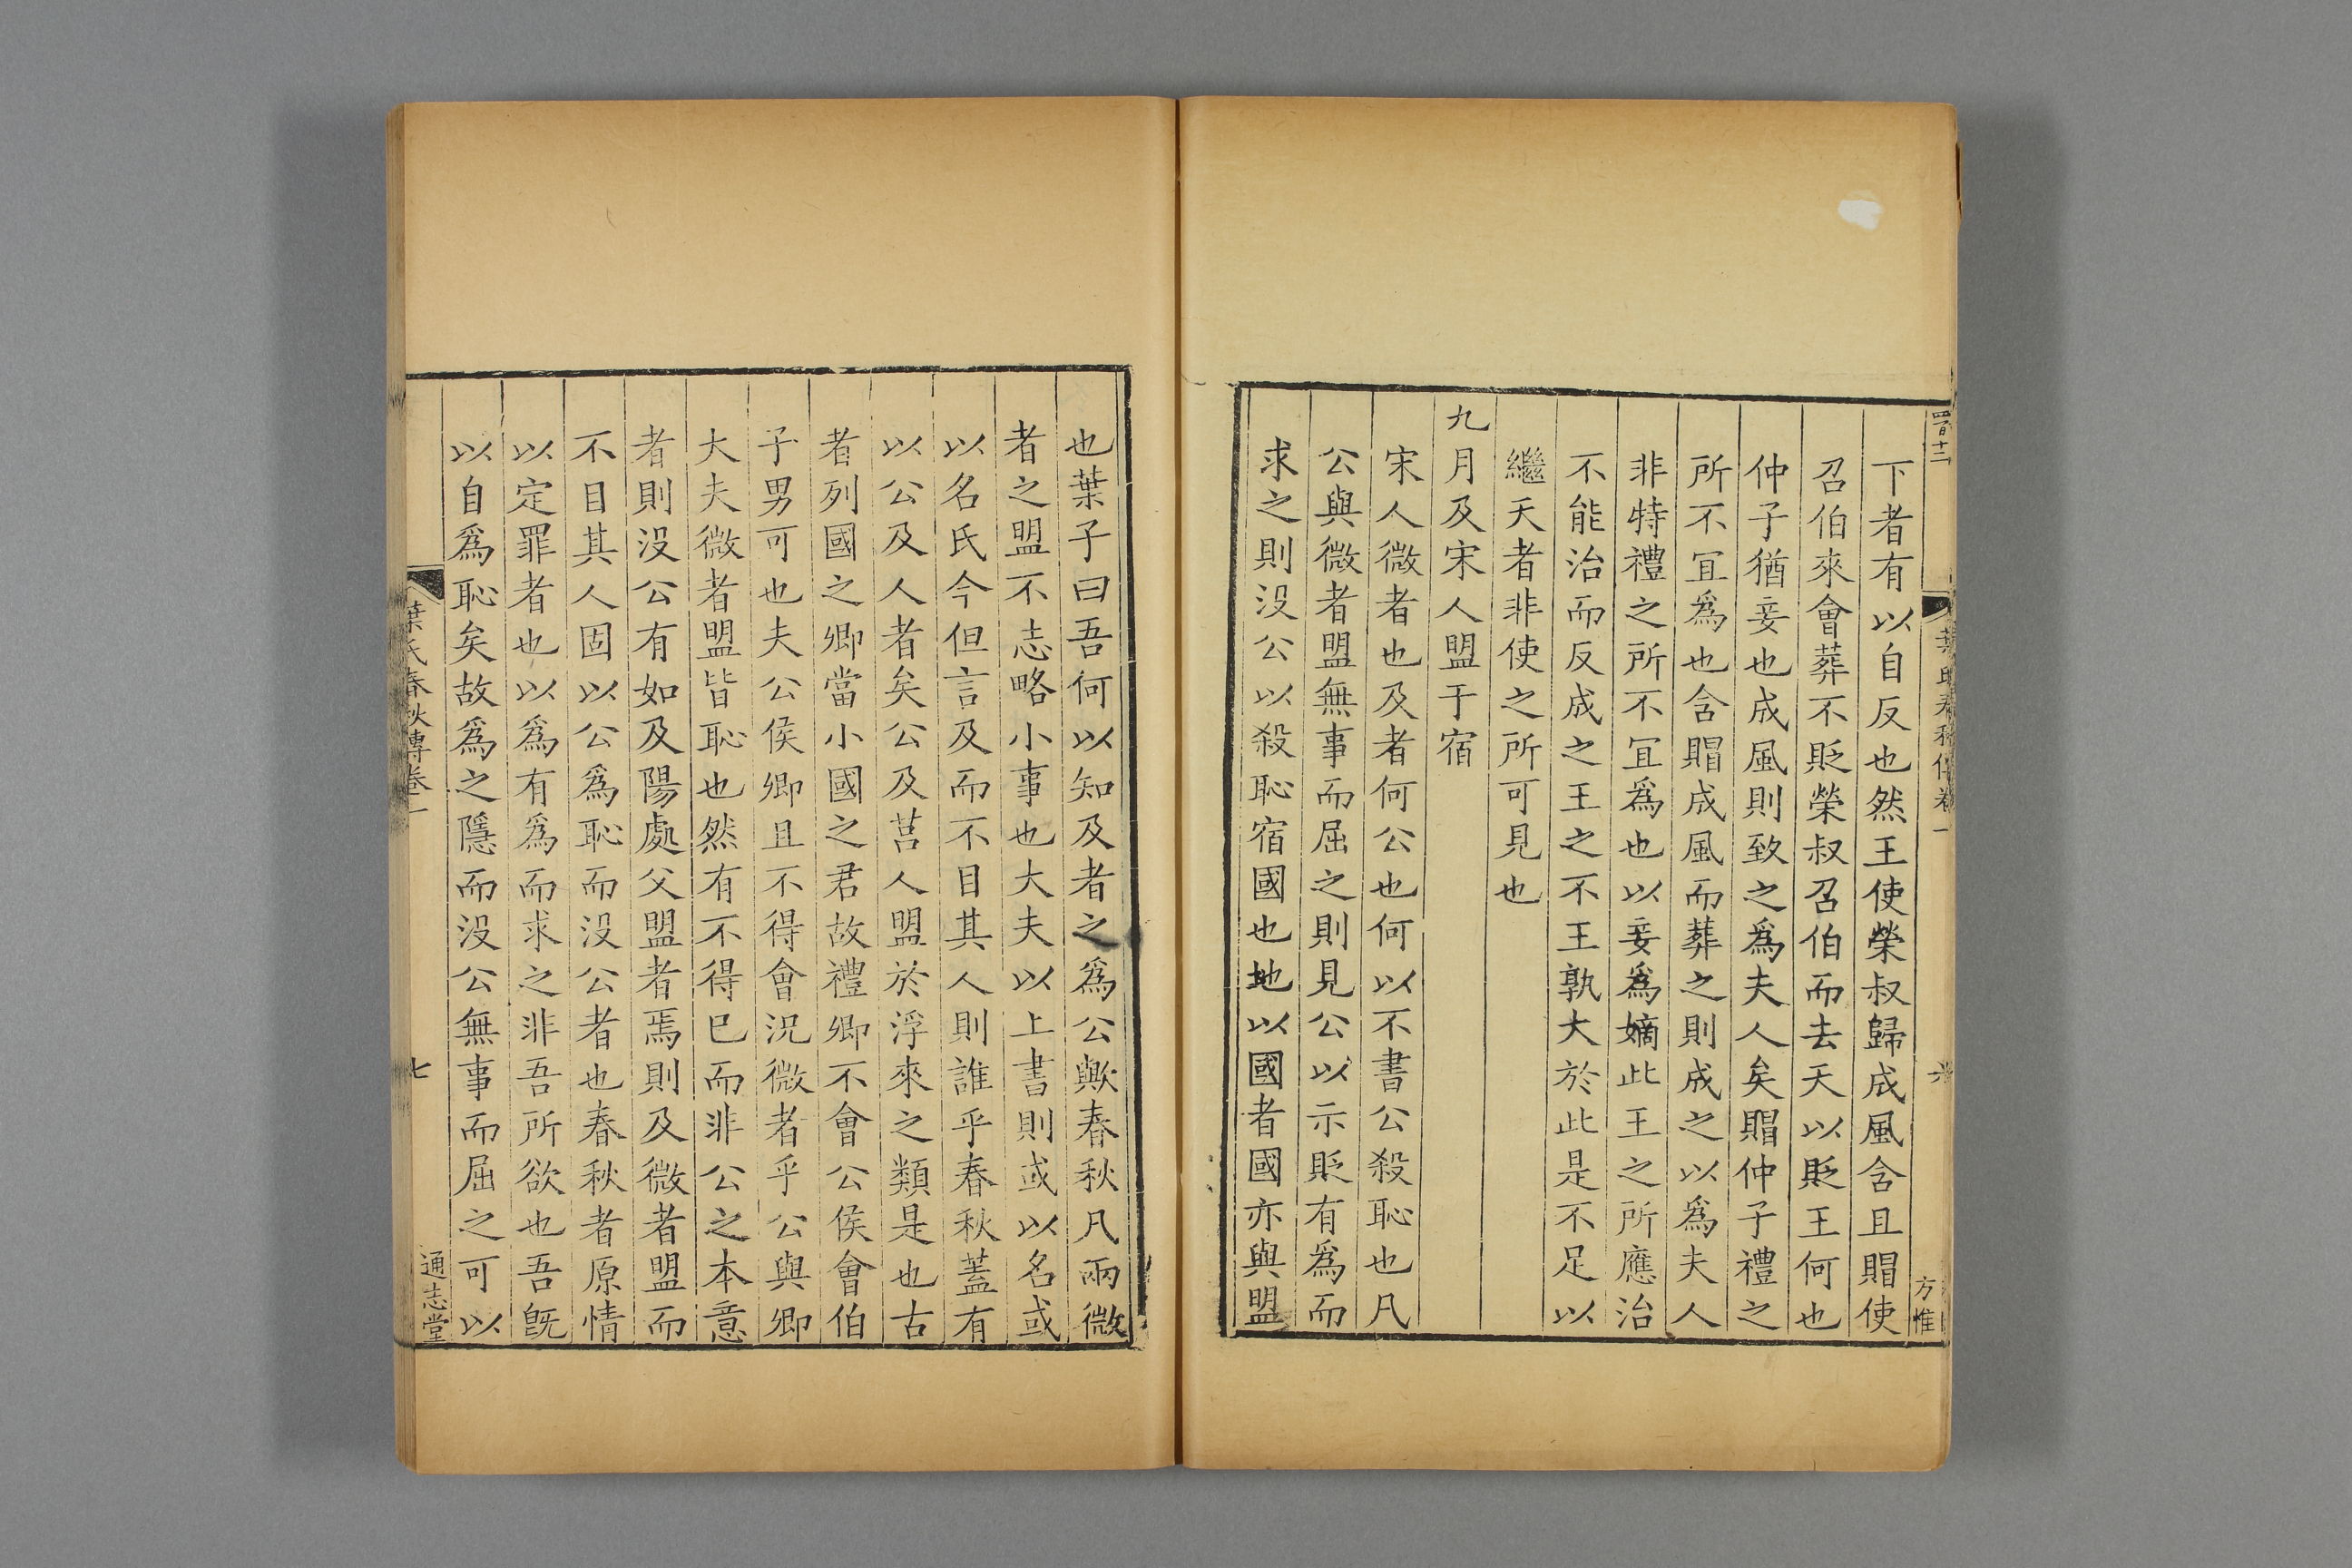 下者有以自反也然王使榮叔歸成風含且賵使
召伯來會葬不貶榮叔召伯而去天以貶王何也
仲子猶妾也成風則致之爲夫人矣賵仲子禮之
所不宜爲也含賵成風而葬之則成之以爲夫人
非特禮之所不宜爲也以妾爲嫡此王之所應治
不能治而反成之王之不王孰大於此是不足以
繼天者非使之所可見也
九月及宋人盟于宿
宋人微者也及者何公也何以不書公殺恥也凡
公與微者盟無事而屈之則見公以示貶有爲而
求之則没公以殺恥宿國也地以國者國亦與盟
方惟
也葉子曰吾何以知及者之爲公歟春秋凡兩微
者之盟不志略小事也大夫以上書則或以名或
以名氏今但言及而不目其人則誰乎春秋蓋有
以公及人者矣公及莒人盟於浮來之類是也古
者列國之卿當小國之君故禮卿不會公侯會伯
子男可也夫公侯卿且不得會況微者乎公與卿
大夫微者盟皆恥也然有不得已而非公之本意
者則没公有如及陽處父盟者焉則及微者盟而
不目其人固以公爲恥而没公者也春秋者原情
以定罪者也以爲有爲而求之非吾所欲也吾旣
以自爲恥矣故爲之隱而没公無事而屈之可以
葉氏春秋傳卷一
七
通志堂